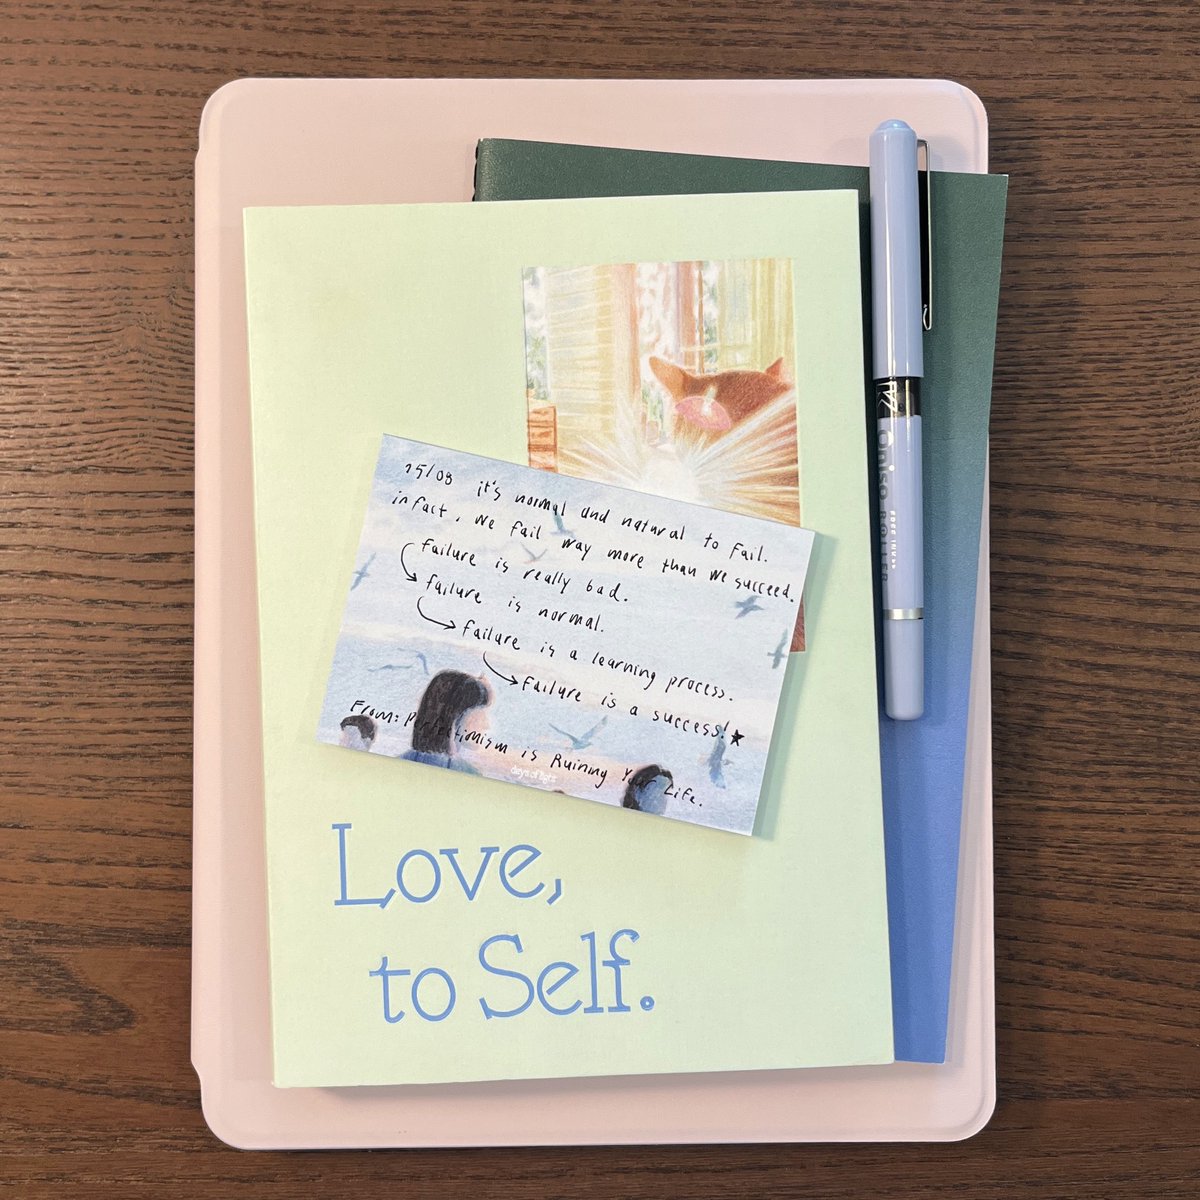 25/08 it's normal and natural to fail.
in fact, we fail way more than we succeed.
failure is really bad.
failure is normal.
failure is a learning process.
failure is a success!
From: Perfectionism is Ruining Your Life.
days of light
Love,
to Self.